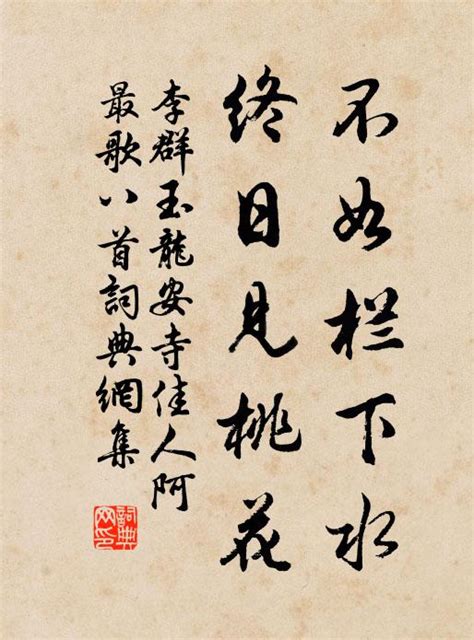 不如栏下水
终日见桃花
李群玉龍安寺佳人阿
最歌八首詞典網集
詞典网印